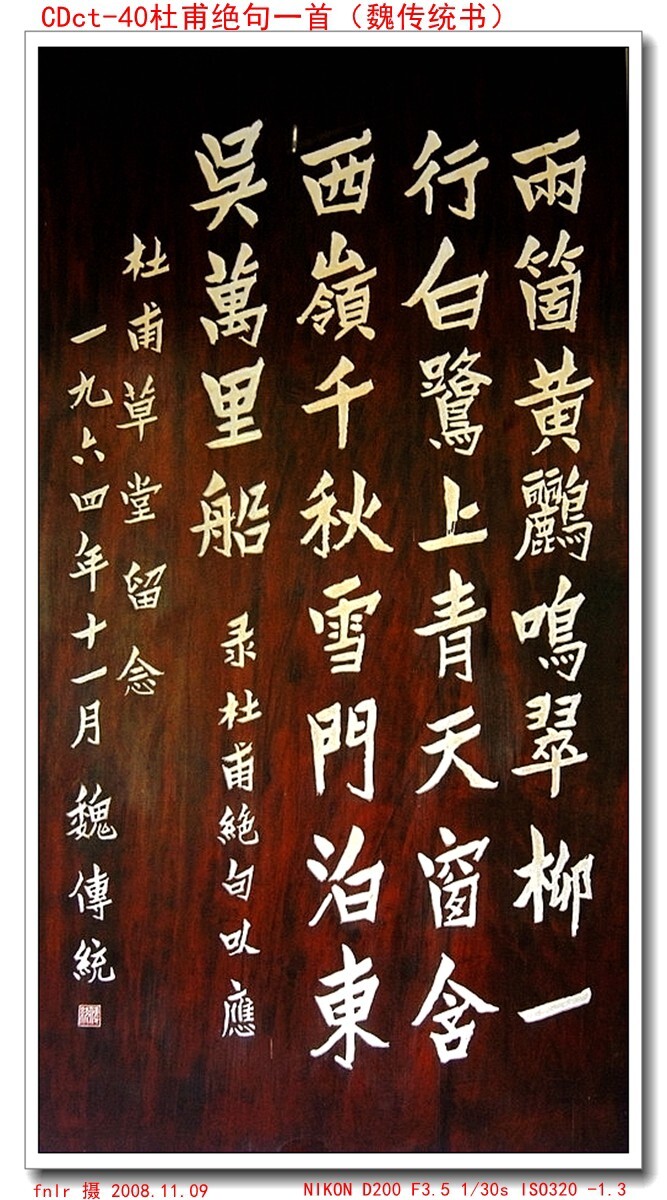 CDct-40杜甫绝句一首（魏传统书）
兩箇黄鸝鳴翠柳一
行白鷺上青天窗含
西嶺千秋雪門泊東
吳萬里船
录杜甫絶句以應
杜甫草堂留念
一九六四年十一月 魏傳統
fnlr 摄 2008.11.09
NIKON D200 F3.5 1/30s ISO320 -1.3